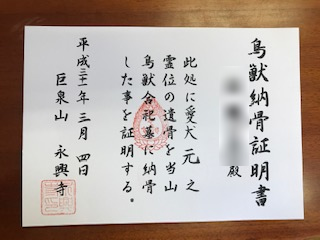 鳥獣納骨証明書
殿
此処に愛犬元之
霊位の遺骨を当山
鳥獣合祀墓に納骨
した事を証明する。
平成三十一年三月四日
巨泉山 永興寺